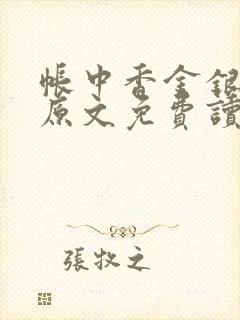 帳中香金銀
原文免費讀
張牧之